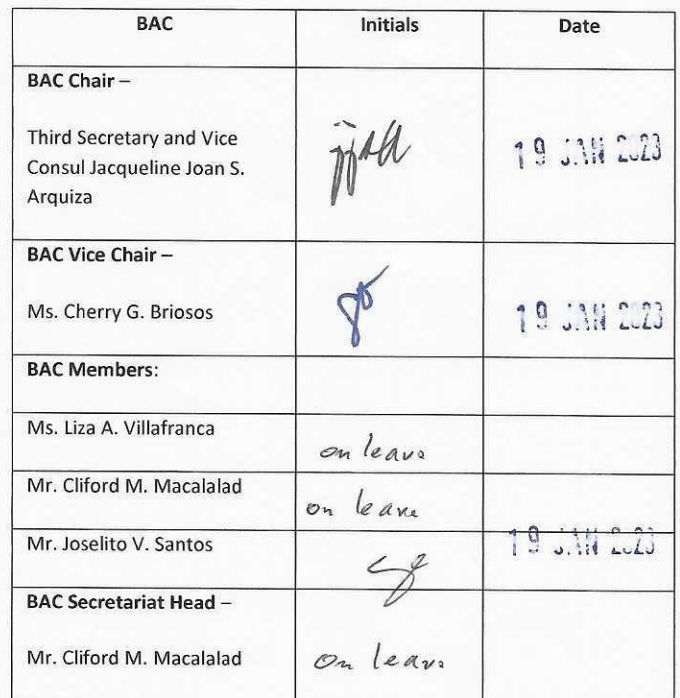 BAC Initials Date
BAC Chair –
Third Secretary and Vice
Consul Jacqueline Joan S.
Arquiza
19 JAN 2023
BAC Vice Chair –
Ms. Cherry G. Briosos
19 JAN 2023
BAC Members:
Ms. Liza A. Villafranca
on leave
Mr. Cliford M. Macalalad
on leave
Mr. Joselito V. Santos
19 JAN 2023
BAC Secretariat Head –
Mr. Cliford M. Macalalad
on leave